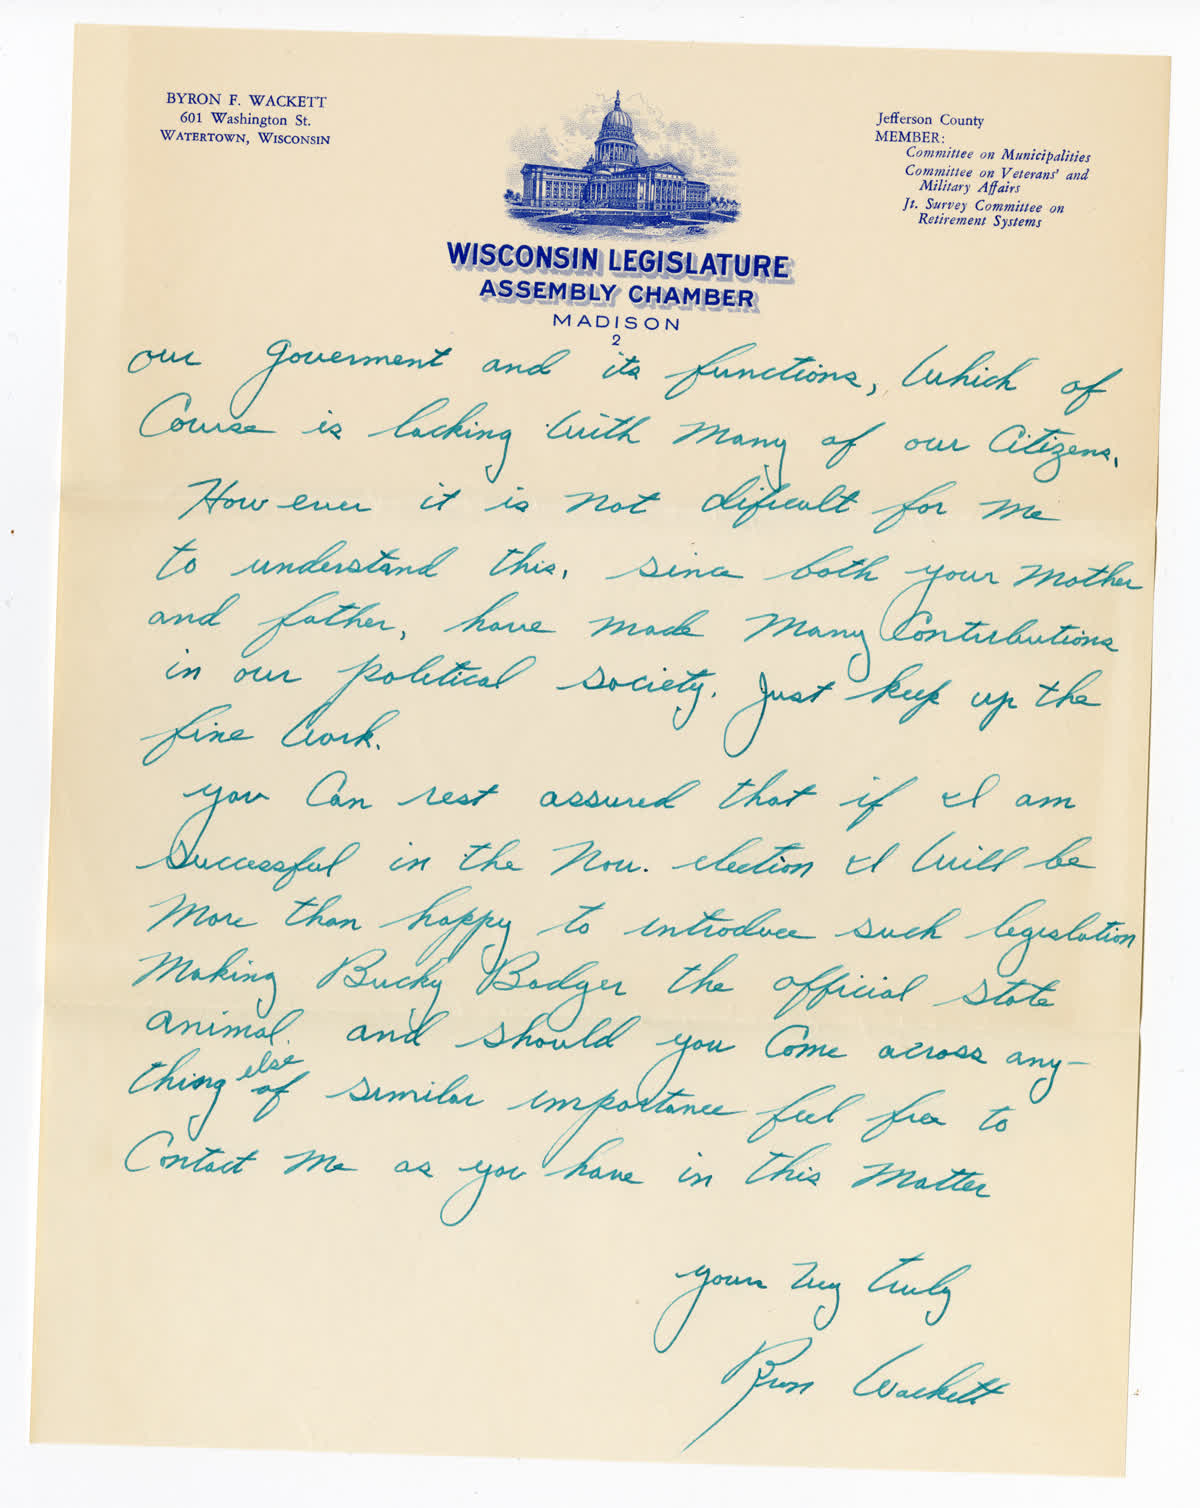 BYRON F. WACKETT
601 Washington St.
WATERTOWN, WISCONSIN
Jefferson County
MEMBER:
Committee on Municipalities
Committee on Veterans' and
Military Affairs
Jt. Survey Committee on
Retirement Systems
WISCONSIN LEGISLATURE
ASSEMBLY CHAMBER
MADISON
2
our Goverment and its functions, Which of
Course is lacking With Many of our Citizens.
However it is Not dificult for Me
to understand this, since both your Mother
and father, have made Many Contributions
in our political society. Just keep up the
fine Work.
you Can rest assured that if I am
successful in the Nov. election I Will be
More than happy to introduce such legislation
Making Bucky Badger the official state
animal. and should you Come across any-
thing else of similar importance feel free to
Contact Me as you have in this Matter
yours Very truly
Byron Wackett